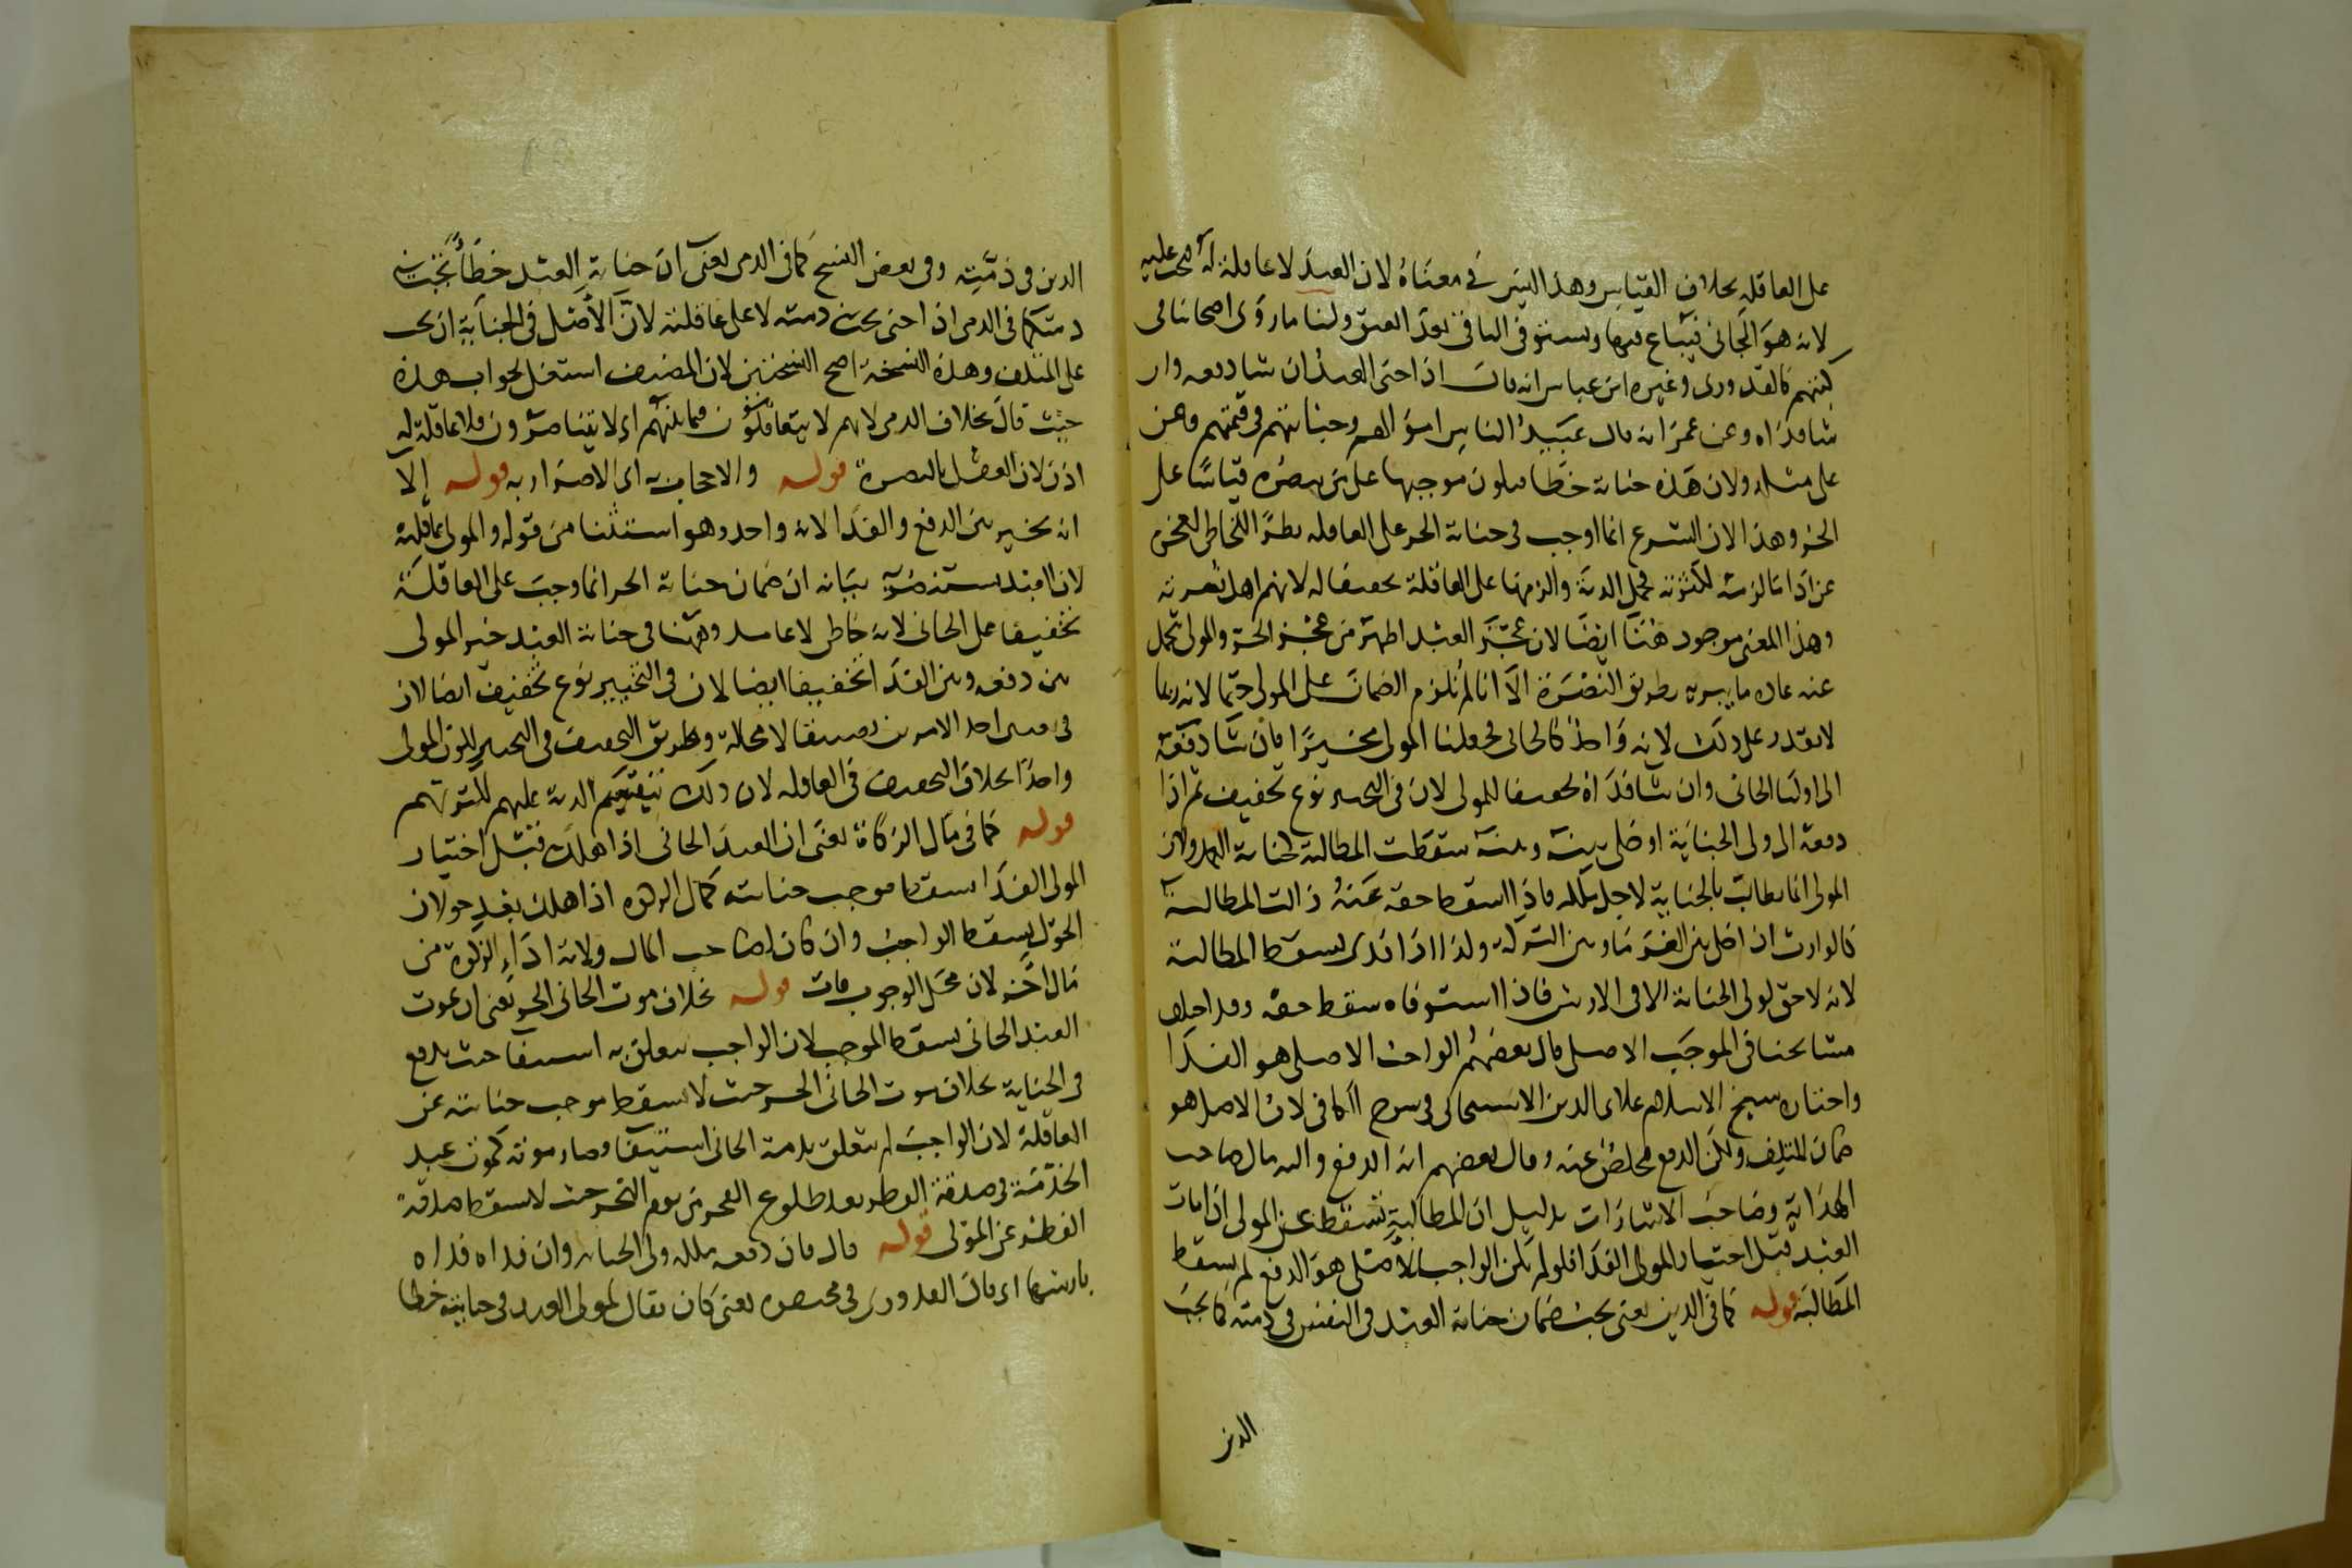 على العاقلة بخلاف القياس وهذا ليس في معناه لان العبد لا عاقلة له فيجب عليه
لانه هو الجاني فيباع فيها ويستوفى الباقي بعد العتق ولنا ما روى اصحابنا في
كتبهم كالقدوري وغيره ابن عباس انه قال اذا جنى العبد ان شا دفعه وان
شا فداه وعن عمر انه قال عبيد الناس اموالهم وجناياتهم في قيمتهم وعن
على مثله ولان هذه جناية خطا فيكون موجبها على من ينصره قياسا على
الحر وهذا لان الشرع انما اوجب في جناية الحر على العاقله نظرا للخاطي لعجزه
عن اداء ما لزمته لكثرته فحمل الدية والزمها على العاقلة تخفيفا له لانهم اهل نصرته
وهذا المعنى موجود هنا ايضا لان عجز العبد اظهر من عجز الحر والمولى تحمل
عنه عادة ما يسر به بطريق النصرة الا انا لم نلزم الضمان على المولى حتما لانه ربما
لا يقدر على ذلك لانه واحد كالجاني فجعلنا المولى مخيرا فان شا دفعه
الى اوليا الجاني وان شا فداه تخفيفا للمولى لان في التخيير نوع تخفيف ثم اذا
دفعه الى ولى الجناية او خلى بينه وبينه سقطت المطالبة لجناية العبد لان
المولى انما يطالب بالجناية لاجل ملكه فاذا اسقط حقه عنه زالت المطالبة
كالوارث اذا خلى بين الغرما وبين التركة ولذا اذا فدى يسقط المطالبة
لانه لا حق لولى الجناية الا في الارش فاذا استوفاه سقط حقه وقد اختلف
مشايخنا في الموجب الاصلى قال بعضهم الواجب الاصلى هو الفدا
واختاره شيخ الاسلام علاى الدين الاسبيجابي في شرح الكافي لان الاصل هو
ضمان المتلف ولكن الدفع مخلص عنه وقال بعضهم انه الدفع واليه مال صاحب
الهداية وصاحب الاشارات بدليل ان المطالبة تسقط عن المولى اذا مات
العبد قبل اختيار المولى الفدا فلو لم يكن الواجب الاصلى هو الدفع لم يسقط
المطالبة قوله كما في الدين يعنى يجب ضمان جناية العبد في النفس في ذمته كما يجب
الدين
الدين في ذمته وفي بعض النسخ كما في الذمي يعنى ان جناية العبد خطأ تجب في
ذمته كما في الذمي اذا جنى يجب في ذمته لا على عاقلته لان الاصل في الجناية ان يجب
على المتلف وهذه النسخة اصح النسختين لان المصنف استغل لجواب هذه
حيث قال بخلاف الذمي لانهم لا يتعاقلون فيما بينهم اي لا يتناصرون فلا عاقلة له
اذن لان العقل بالنصرة قوله والاجحاف به اي الاضرار به قوله إلا
انه يخير بين الدفع والفدا لانه واحد وهو استثنا من قوله والمولى عاقلته
لان العبد يستنصر به بيانه ان ضمان جناية الحر انما وجب على العاقلة
تخفيفا على الجاني لانه خاطي لا عامد وههنا في جناية العبد خير المولى
بين دفعه وبين الفدا تخفيفا ايضا لان في التخيير نوع تخفيف ايضا لان
في احد الامرين لا محالة وطريق التخفيف في التخيير لكون المولى
واحدا بخلاف التخفيف في العاقله لان ذلك بتقسيم الدية عليهم لكثرتهم
قوله كما في مال الزكاة يعنى ان العبد الجاني اذا هلك قبل اختيار
المولى الفدا سقط موجب جنايته كمال الزكوة اذا هلك بعد حولان
الحول يسقط الواجب وان كان لصاحب المال ولاية اداء الزكوة من
مال اخر لان محل الوجوب فات قوله بخلاف موت الجاني الحر يعنى ان بموت
العبد الجاني يسقط الموجب لان الواجب يتعلق به استيفا حيث يدفع
في الجناية بخلاف موت الجاني الحر حيث لا يسقط موجب جنايته عن
العاقلة لان الواجب لم يتعلق بذمة الجاني استيفا وصار موته كموت عبد
الخدمة في صدقة الفطر بعد طلوع الفجر من يوم النحر حيث لا يسقط صدقة
الفطر عن المولى قوله قال فان دفعه ملكه ولى الجناية وان فداه فداه
بارشها اي قال القدوري في مختصره يعنى كان يقال لمولى العبد في جنايته خطا